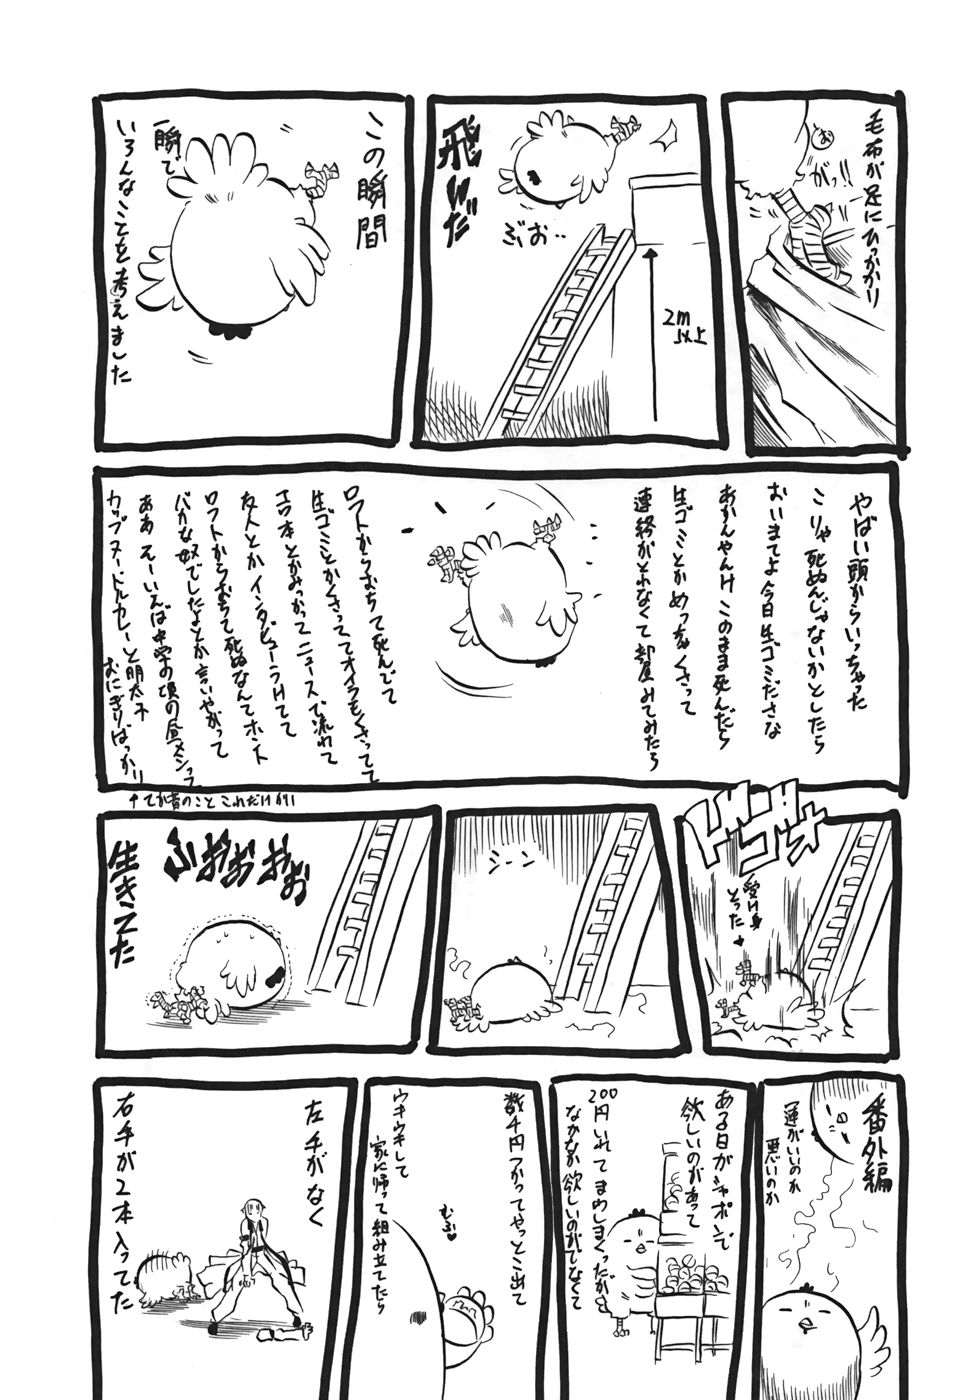 毛布が足にひっかかり
お
がっ!!
飛んだ
ぶお‥
2m
以上
この瞬間
一瞬で
いろんなことを考えました
やばい頭からいっちゃった
こりゃ死ぬんじゃないかとしたら
おいまてよ今日生ゴミださな
あかんやんけこのまま死んだら
生ゴミとかめっちゃくさって
連絡がとれなくて部屋みてみたら
ロフトからおちて死んでて
生ゴミとかくさっててオイラもくさってて
エロ本とかみつかってニュースで流れて
友人とかインタビューうけてて
ロフトからおちて死ぬなんてホント
バカな奴でしたよとか言いやがって
ああ そーいえば中学の頃の昼メシって
カップヌードルカレーと明太子
おにぎりばっかり
↑てか昔のこと これだけかい
ドゴォ
受け身
とった
シーン
ふおおおおお
生きてた
番外編
運がいいのか
悪いのか
ある日ガシャポンで
欲しいのがあって
200円いれてまわしまくったが
なかなか欲しいのがでなくて
数千円つかってやっとこ出て
ウキウキして
家に帰って組み立てたら
むふ♥
左手がなく
右手が2本入ってた